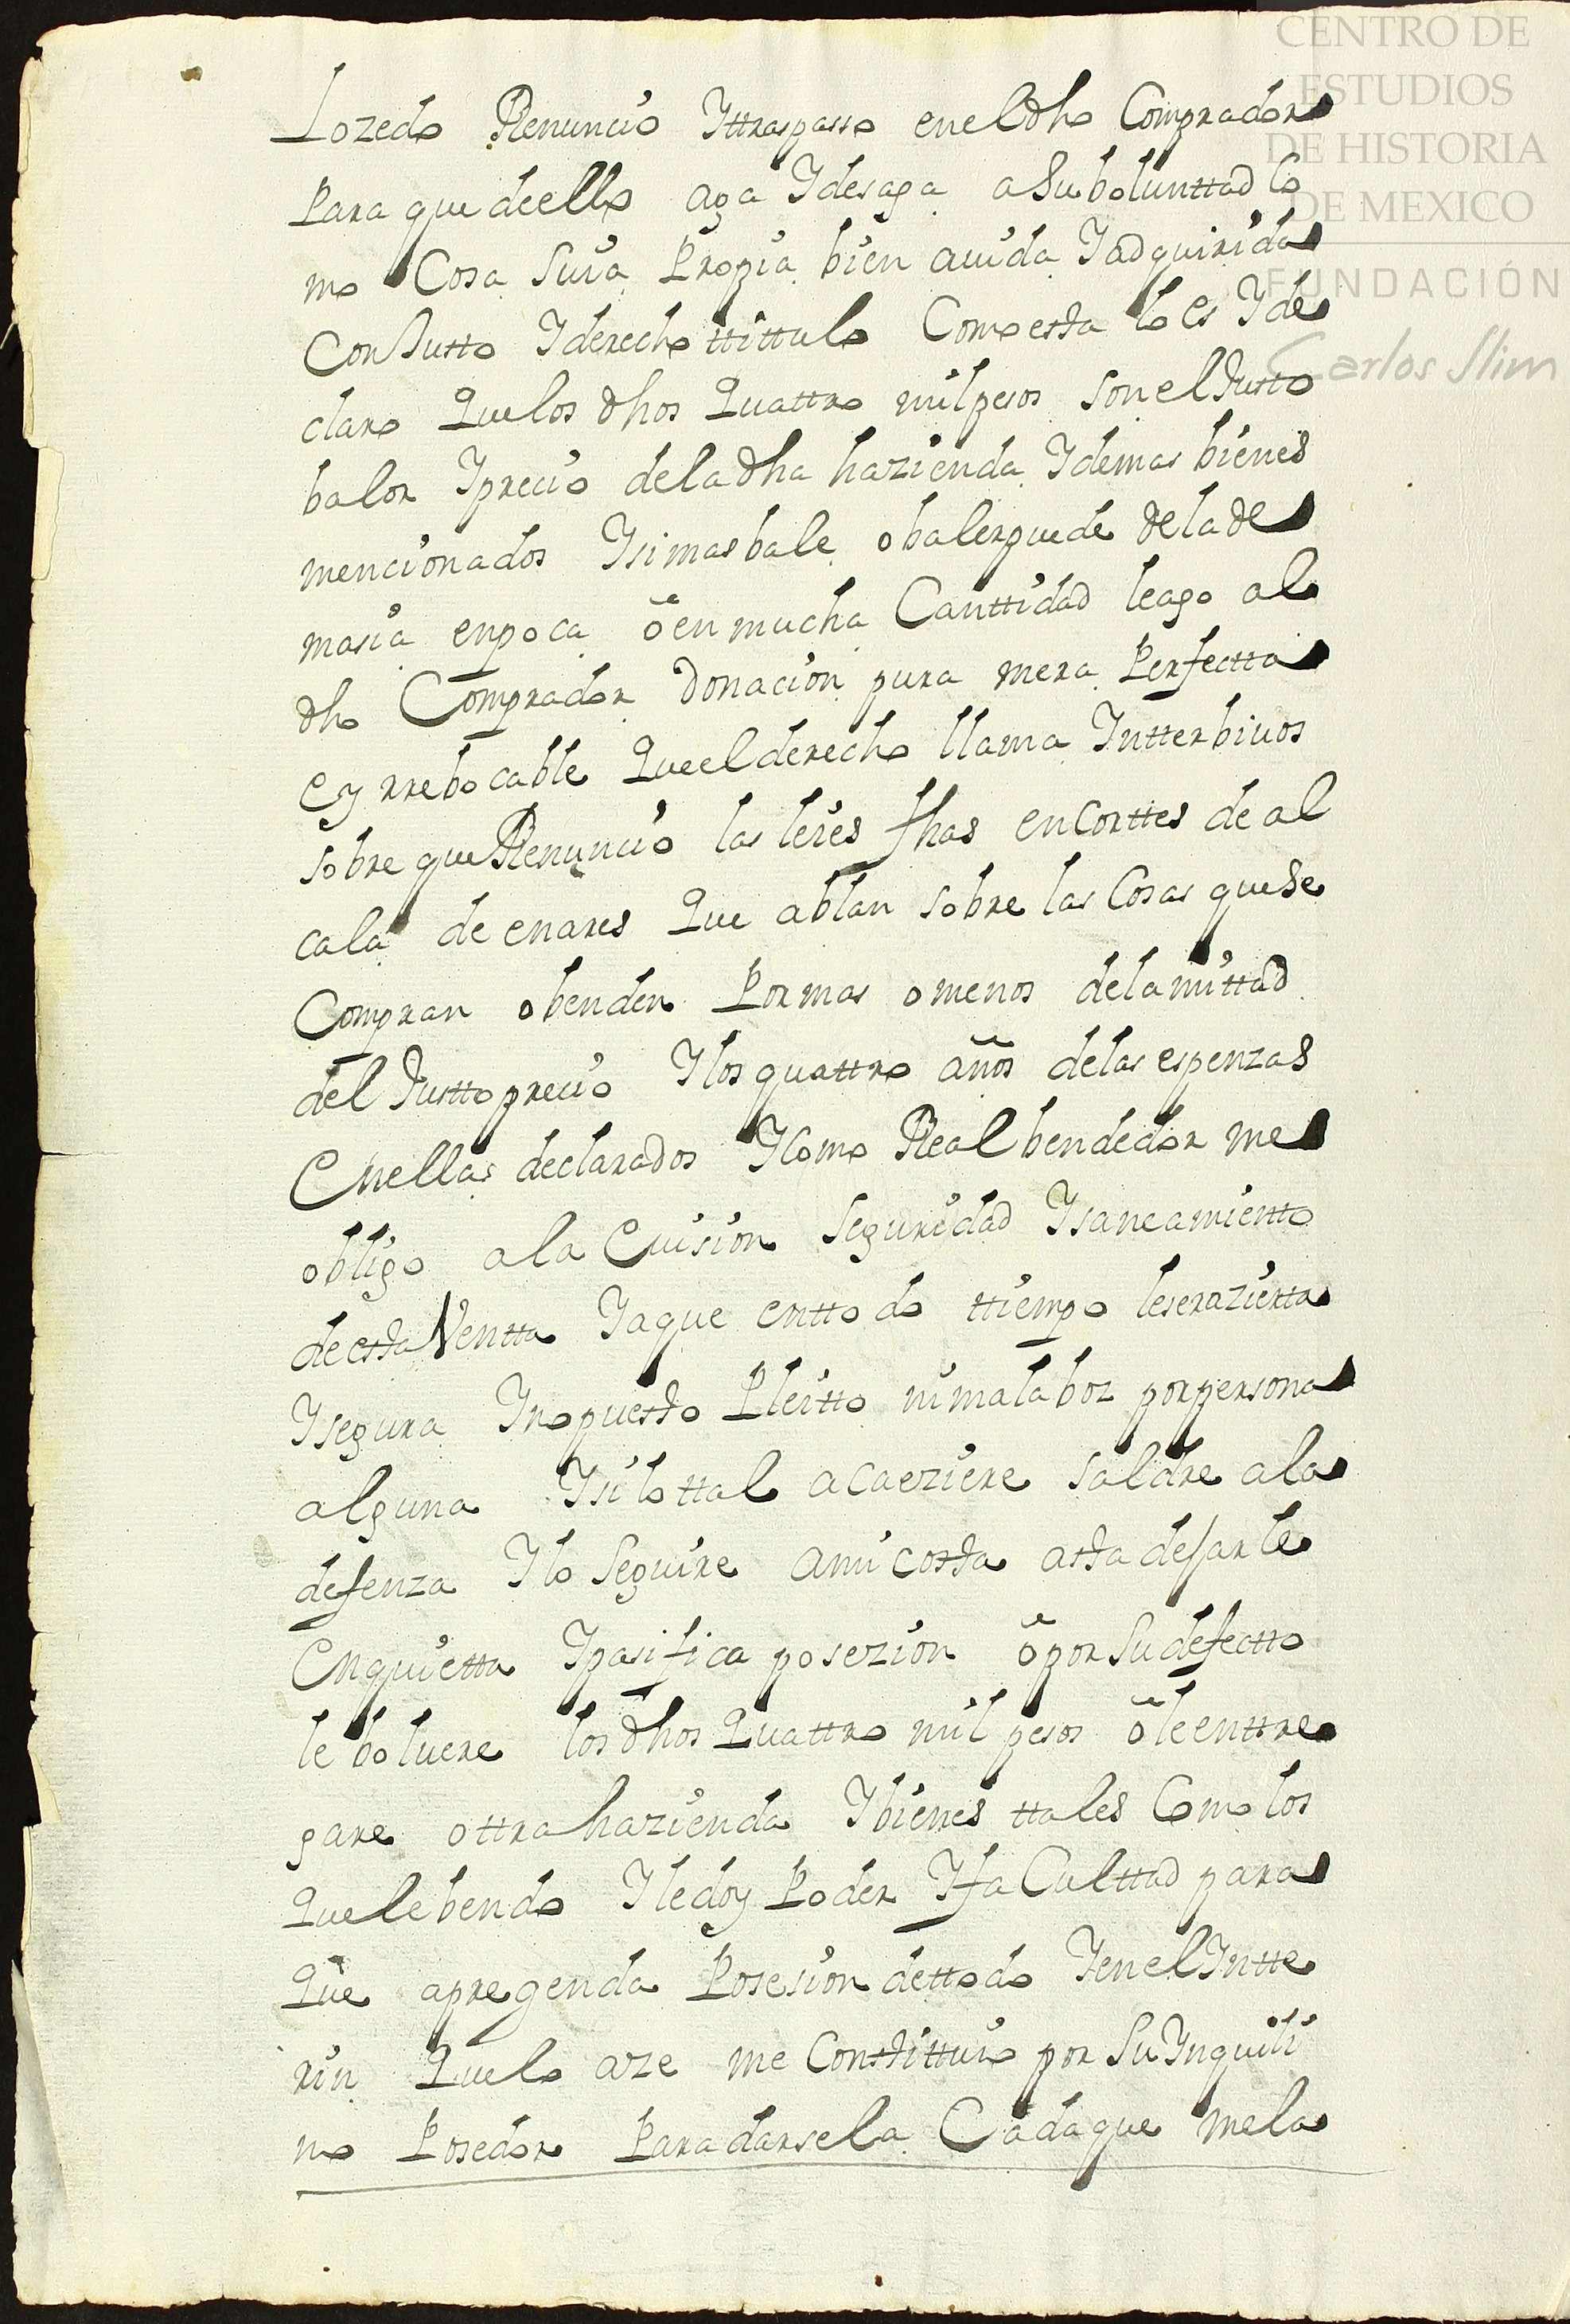 CENTRO DE
ESTUDIOS
DE HISTORIA
DE MEXICO
FUNDACIÓN
Carlos Slim
Lo zedo Renuncio Yttraspasso en el dho Comprador
Para que de ello aga Y desaga a Su boluntad Co
mo Cosa Suia Propia bien auida Y adquirida
Con Justto Y derecho ttittulo Como esta lo es Y de
claro Que los dhos Quattro mil pesos son el Justo
balor Y precio de la dha hazienda Y demas bienes
mencionados Y si mas bale o baler puede de la de
masia en poca õ en mucha Canttidad le ago al
dho Comprador Donacion pura mera Perfectta
e yrrebocable Que el derecho llama Intterbiuos
sobre que Renuncio las leies fhas en Corttes de al
cala de enares Que ablan sobre las Cosas que se
Compran o benden Por mas o menos de la mittad
del Justto precio Y los quattro años de las espenzas
en ellas declarados Y Como Real bendedor me
obligo a la euision Seguridad Y saneamiento
de esta Ventta Y a que en ttodo ttiempo le sera zierta
Y segura Y no puesto Pleitto ni mala boz por persona
alguna Y si lo ttal acaeziere saldre a la
defenza Y lo Seguire a mi costa asta desarle
en quietta Y pasifica posezion õ por Su defectto
le boluere los dhos Quattro mil pesos õ le enttre
gare ottra hazienda Y bienes ttales Como los
Que le bendo Y le doy Poder Y faCulttad para
Que apregenda Posesion de ttodo Y en el Intte
rin Que lo aze me Constittuio por Su Ynquili
no Posedor Para darsela Cada que me la